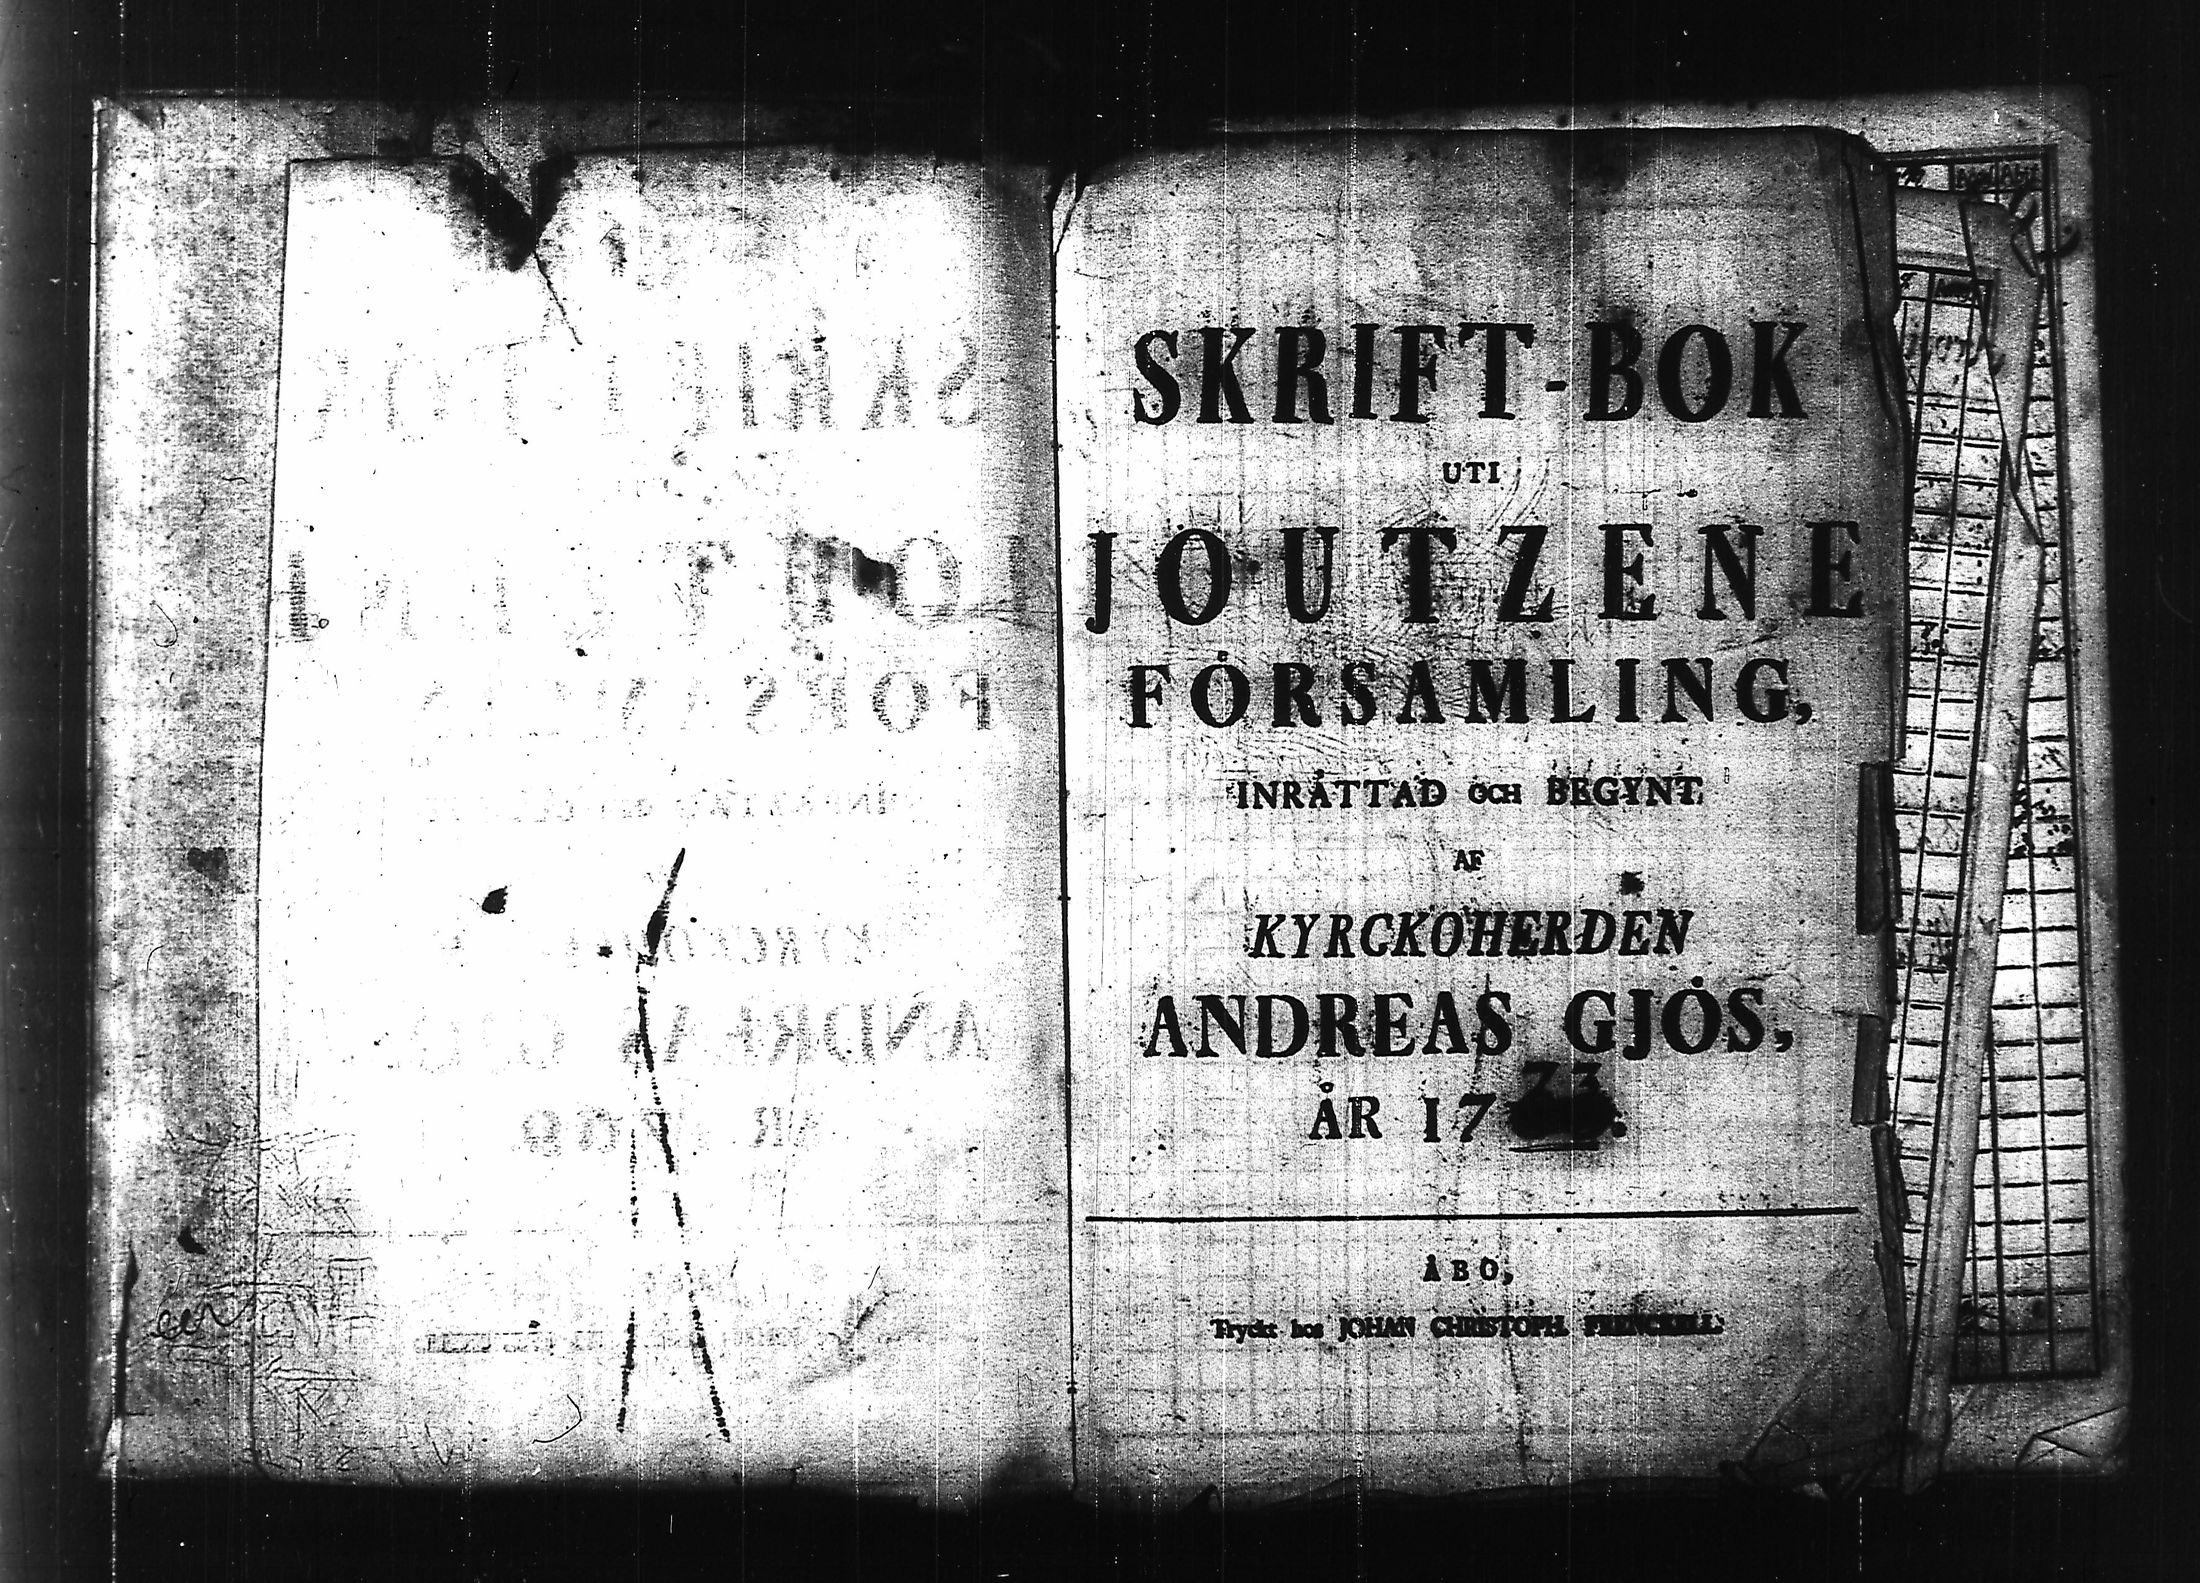 SKRIFT-BOK
UTI
JOUTZENE
FÖRSAMLING,
INRÄTTAD OCH BEGYNT
AF
KYRCKOHERDEN
ANDREAS GJÖS,
ÅR 1773.
ÅBO,
Tryckt hos JOHAN CHRISTOPH. FRENCKELL.